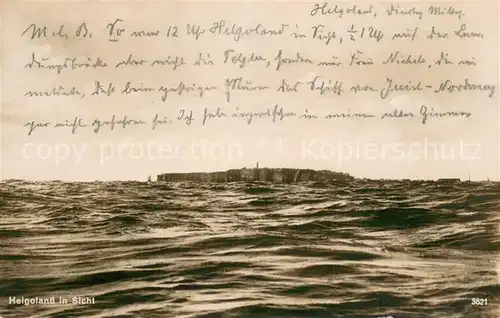 Helgoland, Dienstag Mittag.
M. l. B. So war 12 Uhr Helgoland in Sicht, ½ 1 Uhr auf der Lan
dungsbrücke aber nicht die sondern nur Frau Nickel, die mir
meldete, daß beim gestrigen Sturm das Schiff von Juist-Norderney
gar nicht gefahren sei. Ich habe inzwischen in meinem alten Zimmer
copyright by Ansichtskartenversand
Helgoland in Sicht
3621